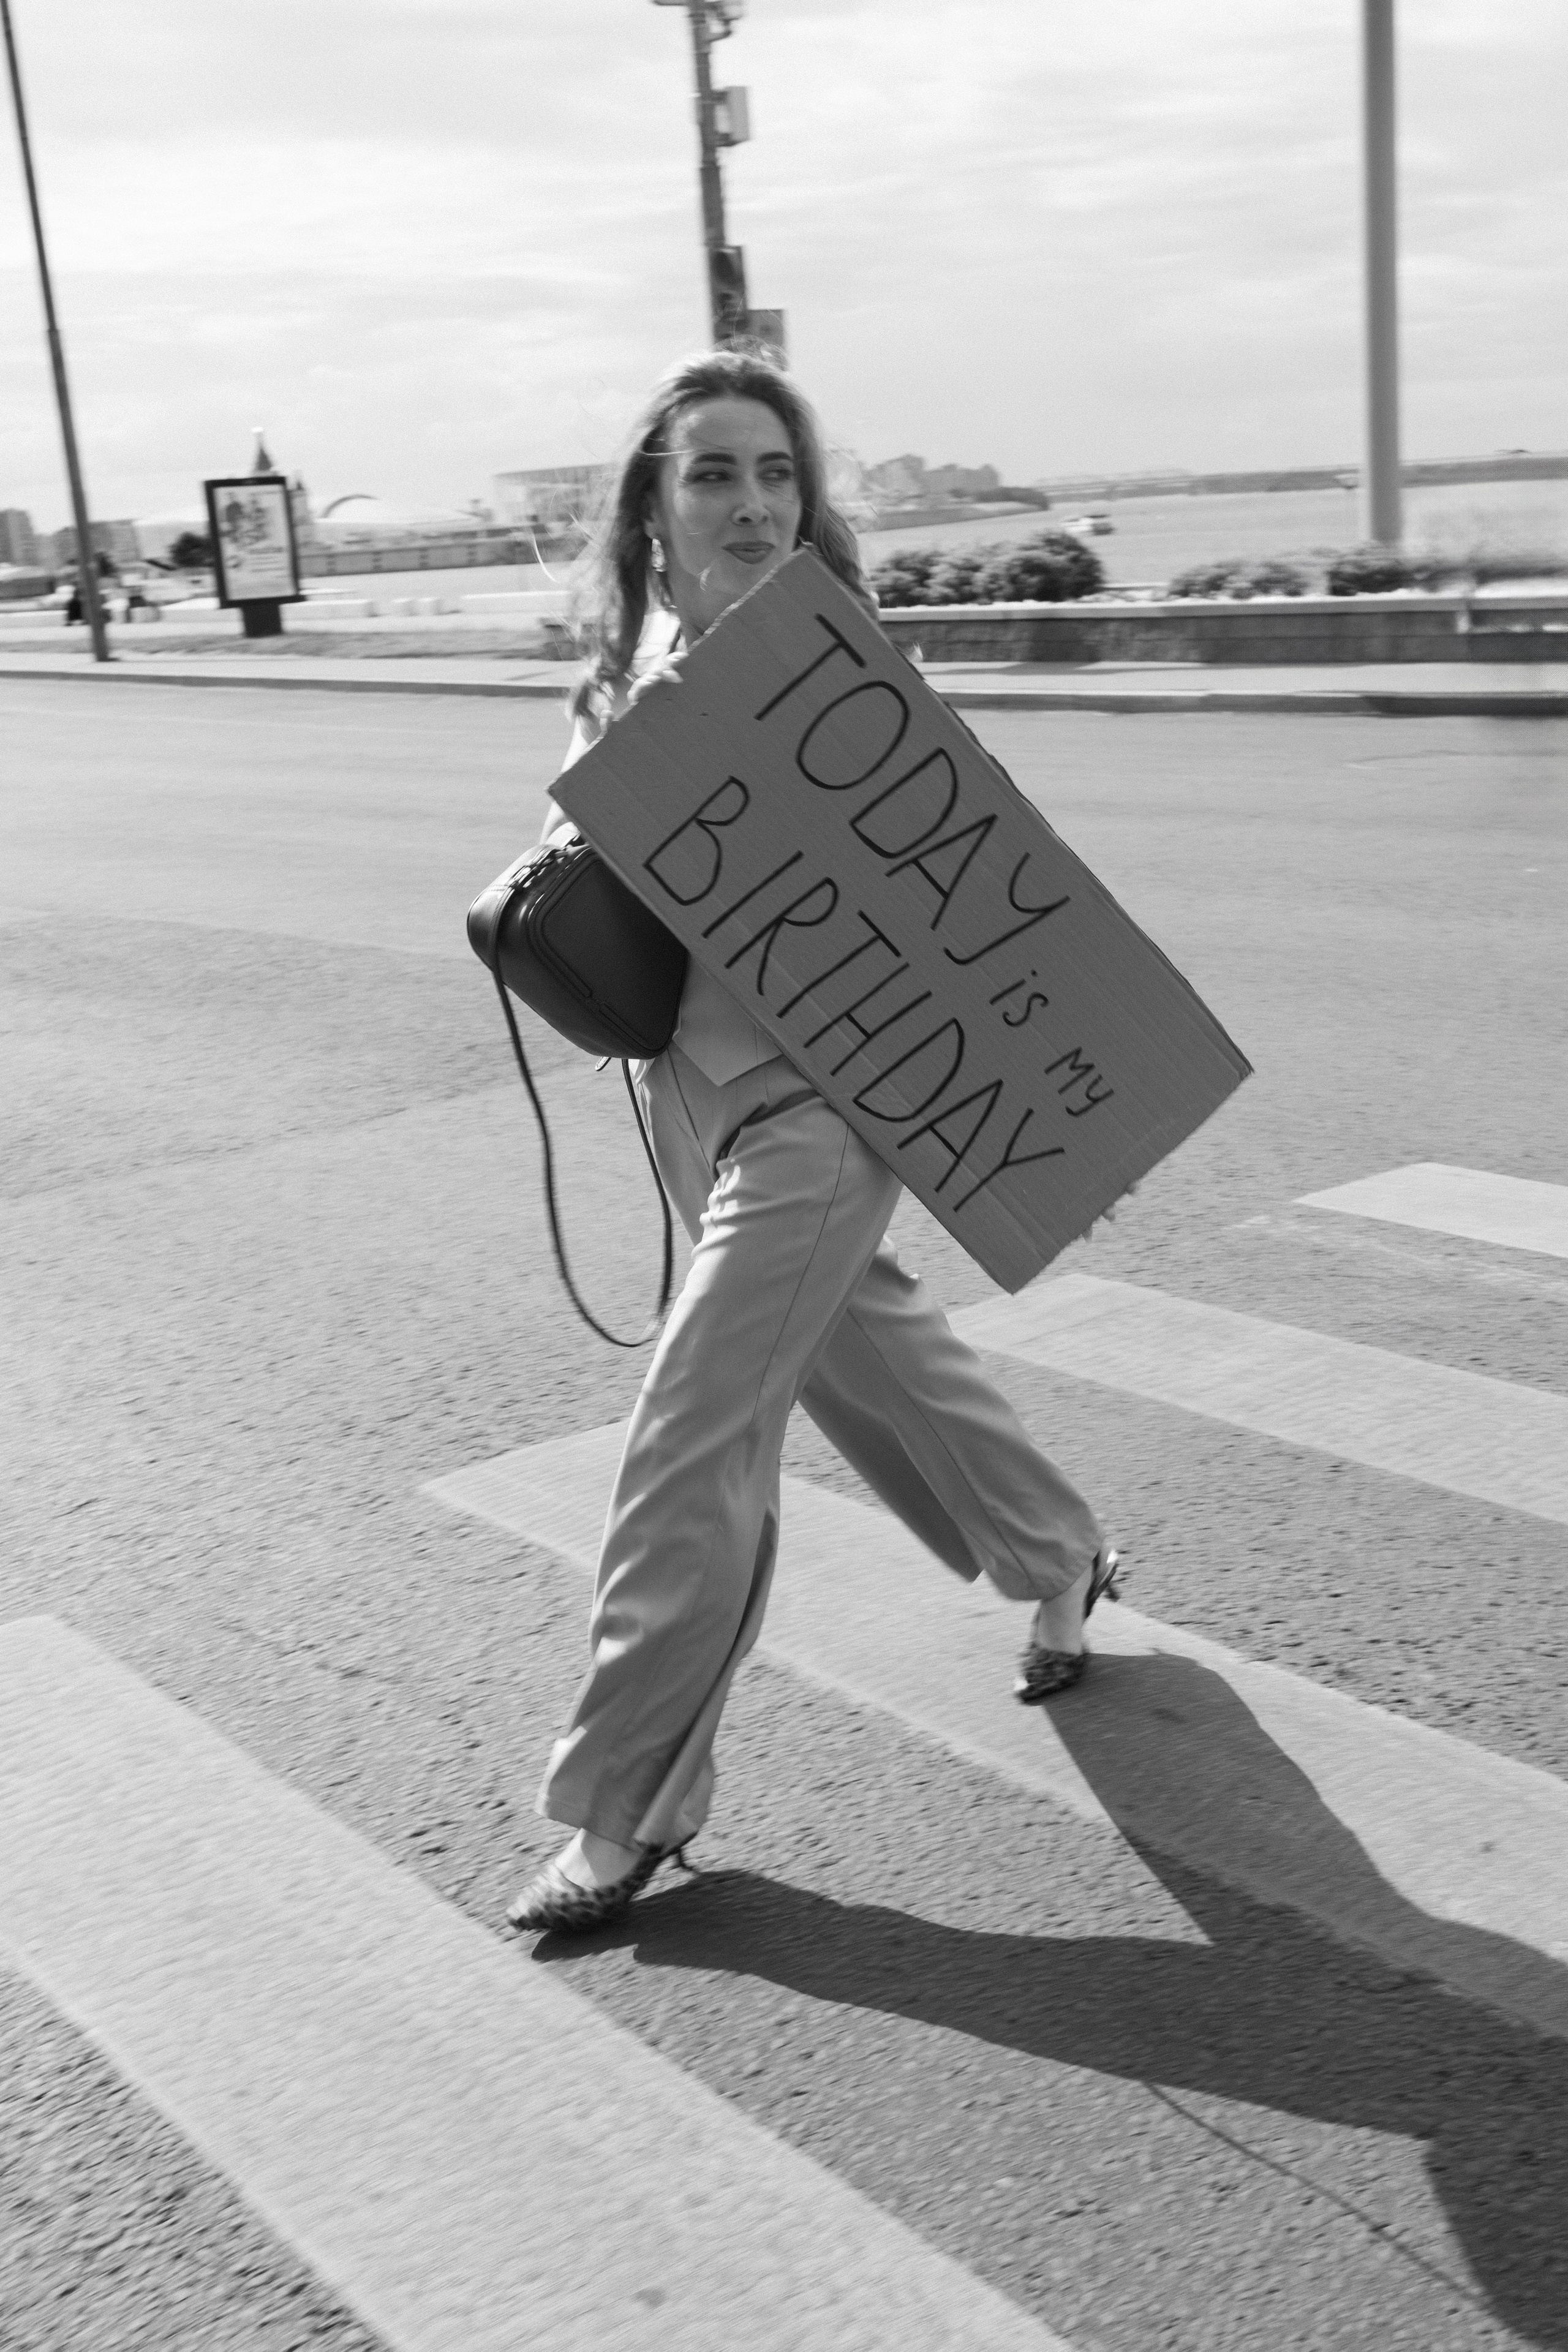 TODAY is MY
BIRTHDAY